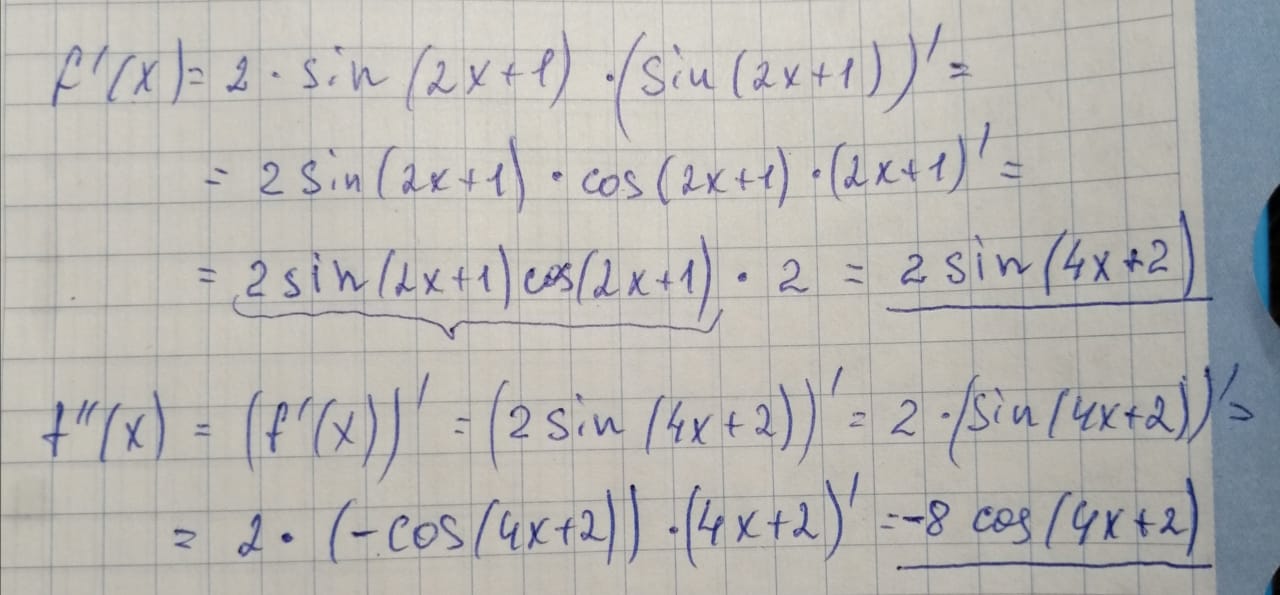 f'(x) = 2 · sin (2x+1) · (sin (2x+1))' =
= 2 sin (2x+1) · cos (2x+1) · (2x+1)' =
= 2 sin (2x+1) cos (2x+1) · 2 = 2 sin (4x+2)
f''(x) = (f'(x))' = (2 sin (4x+2))' = 2 · (sin (4x+2))' =
= 2 · (-cos (4x+2)) · (4x+2)' = -8 cos (4x+2)